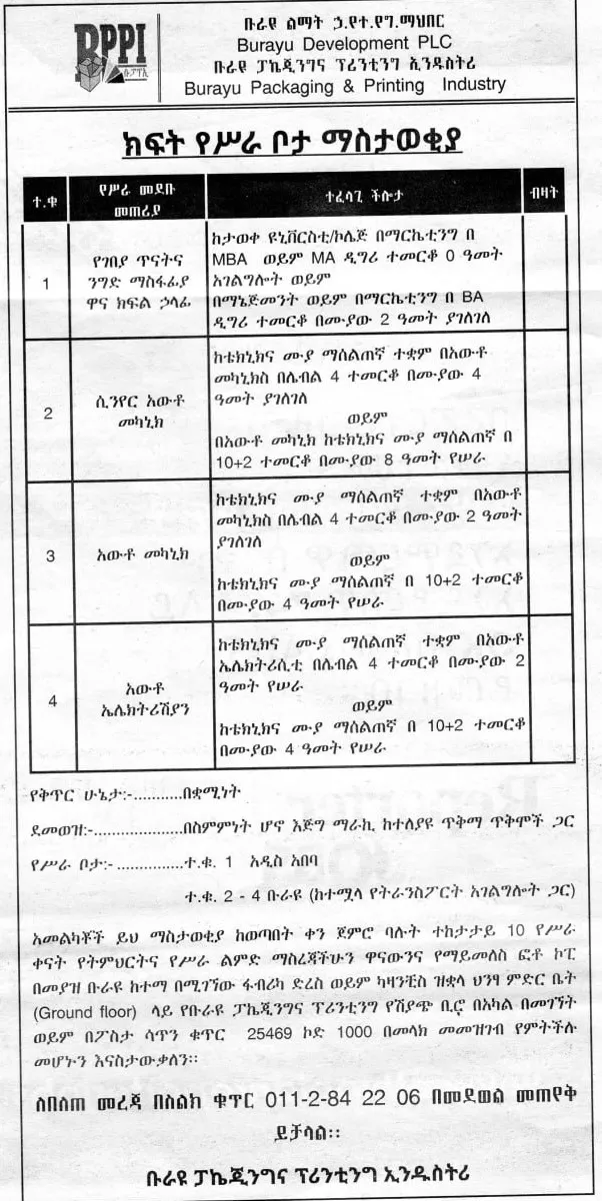 BPPI
ቡፖፕኢ
ቡራዩ ልማት ኃ.የተ.የግ.ማህበር
Burayu Development PLC
ቡራዩ ፓኬጂንግና ፕሪንቲንግ ኢንዱስትሪ
Burayu Packaging & Printing Industry
ክፍት የሥራ ቦታ ማስታወቂያ
ተ.ቁ
የሥራ መደቡ
መጠሪያ
ተፈላጊ ችሎታ
ብዛት
1
የገበያ ጥናትና
ንግድ ማስፋፊያ
ዋና ክፍል ኃላፊ
ከታወቀ ዩኒቨርስቲ/ኮሌጅ በማርኬቲንግ በ
MBA ወይም MA ዲግሪ ተመርቆ 0 ዓመት
አገልግሎት ወይም
በማኔጅመንት ወይም በማርኬቲንግ በ BA
ዲግሪ ተመርቆ በሙያው 2 ዓመት ያገለገለ
2
ሲንየር አውቶ
መካኒክ
ከቴክኒክና ሙያ ማሰልጠኛ ተቋም በአውቶ
መካኒክስ በሌብል 4 ተመርቆ በሙያው 4
ዓመት ያገለገለ
ወይም
በአውቶ መካኒክ ከቴክኒክና ሙያ ማሰልጠኛ በ
10+2 ተመርቆ በሙያው 8 ዓመት የሠራ
3
አውቶ መካኒክ
ከቴክኒክና ሙያ ማሰልጠኛ ተቋም በአውቶ
መካኒክስ በሌብል 4 ተመርቆ በሙያው 2 ዓመት
ያገለገለ
ወይም
ከቴክኒክና ሙያ ማሰልጠኛ በ 10+2 ተመርቆ
በሙያው 4 ዓመት የሠራ
4
አውቶ
ኤሌክትሪሽያን
ከቴክኒክና ሙያ ማሰልጠኛ ተቋም በአውቶ
ኤሌክትሪሲቲ በሌብል 4 ተመርቆ በሙያው 2
ዓመት የሠራ
ወይም
ከቴክኒክና ሙያ ማሰልጠኛ በ 10+2 ተመርቆ
በሙያው 4 ዓመት የሠራ
የቅጥር ሁኔታ:-...........በቋሚነት
ደመወዝ:-....................በስምምነት ሆኖ እጅግ ማራኪ ከተለያዩ ጥቅማ ጥቅሞች ጋር
የሥራ ቦታ:- ...............ተ.ቁ. 1 አዲስ አበባ
ተ.ቁ. 2 - 4 ቡራዩ (ከተሟላ የትራንስፖርት አገልግሎት ጋር)
አመልካቾች ይህ ማስታወቂያ ከወጣበት ቀን ጀምሮ ባሉት ተከታታይ 10 የሥራ
ቀናት የትምህርትና የሥራ ልምድ ማስረጃችሁን ዋናውንና የማይመለስ ፎቶ ኮፒ
በመያዝ ቡራዩ ከተማ በሚገኘው ፋብሪካ ድረስ ወይም ካዛንቺስ ዝቋላ ህንፃ ምድር ቤት
(Ground floor) ላይ የቡራዩ ፓኬጂንግና ፕሪንቲንግ የሽያጭ ቢሮ በአካል በመገኘት
ወይም በፖስታ ሳጥን ቁጥር 25469 ኮድ 1000 በመላክ መመዝገብ የምትችሉ
መሆኑን እናስታውቃለን፡፡
ለበለጠ መረጃ በስልክ ቁጥር 011-2-84 22 06 በመደወል መጠየቅ
ይቻላል፡፡
ቡራዩ ፓኬጂንግና ፕሪንቲንግ ኢንዱስትሪ